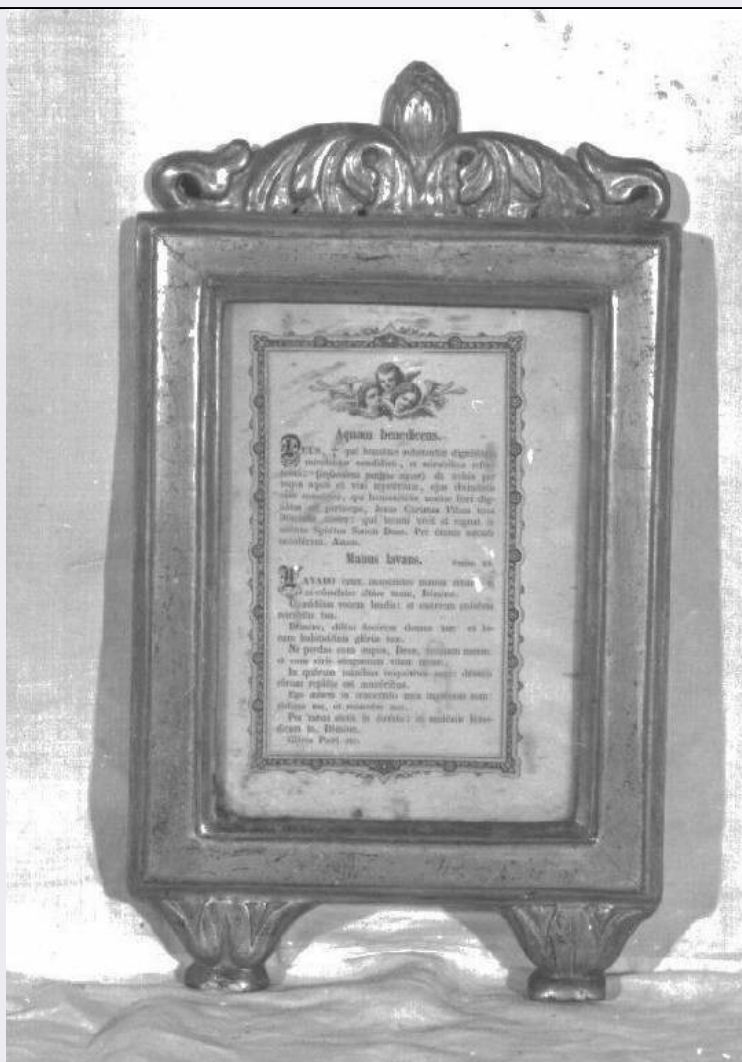 Aquam benedicens.
DEUS, qui humanæ substantiæ dignitatem
mirabiliter condidisti, et mirabilius refor-
per
hujus aquæ et vini mysterium, ejus divinitatis
esse consortes, qui humanitatis nostræ fieri dig-
particeps, Jesus Christus Filius tuus
Dominus noster: qui tecum vivit et regnat in
unitate Spiritus Sancti Deus. Per omnia sæcula
sæculorum. Amen.
Manus lavans.
LAVABO inter innocentes manus meas
altáre tuum, Dómine.
vocem laudis: et enarrem univérsa
tua.
Dómine, diléxi decórem domus tuæ et lo-
cum habitatiónis glóriæ tuæ.
Ne perdas cum impiis, Deus, ánimam meam:
et cum viris sánguinum vitam meam.
In quorum mánibus iniquitátes sunt: déxtera
eórum repléta est munéribus.
Ego autem in innocéntia mea ingréssus sum:
rédime me, et miserére mei.
Pes meus stetit in dirécto: in ecclésiis bene-
dícam te, Dómine.
Glória Patri etc.